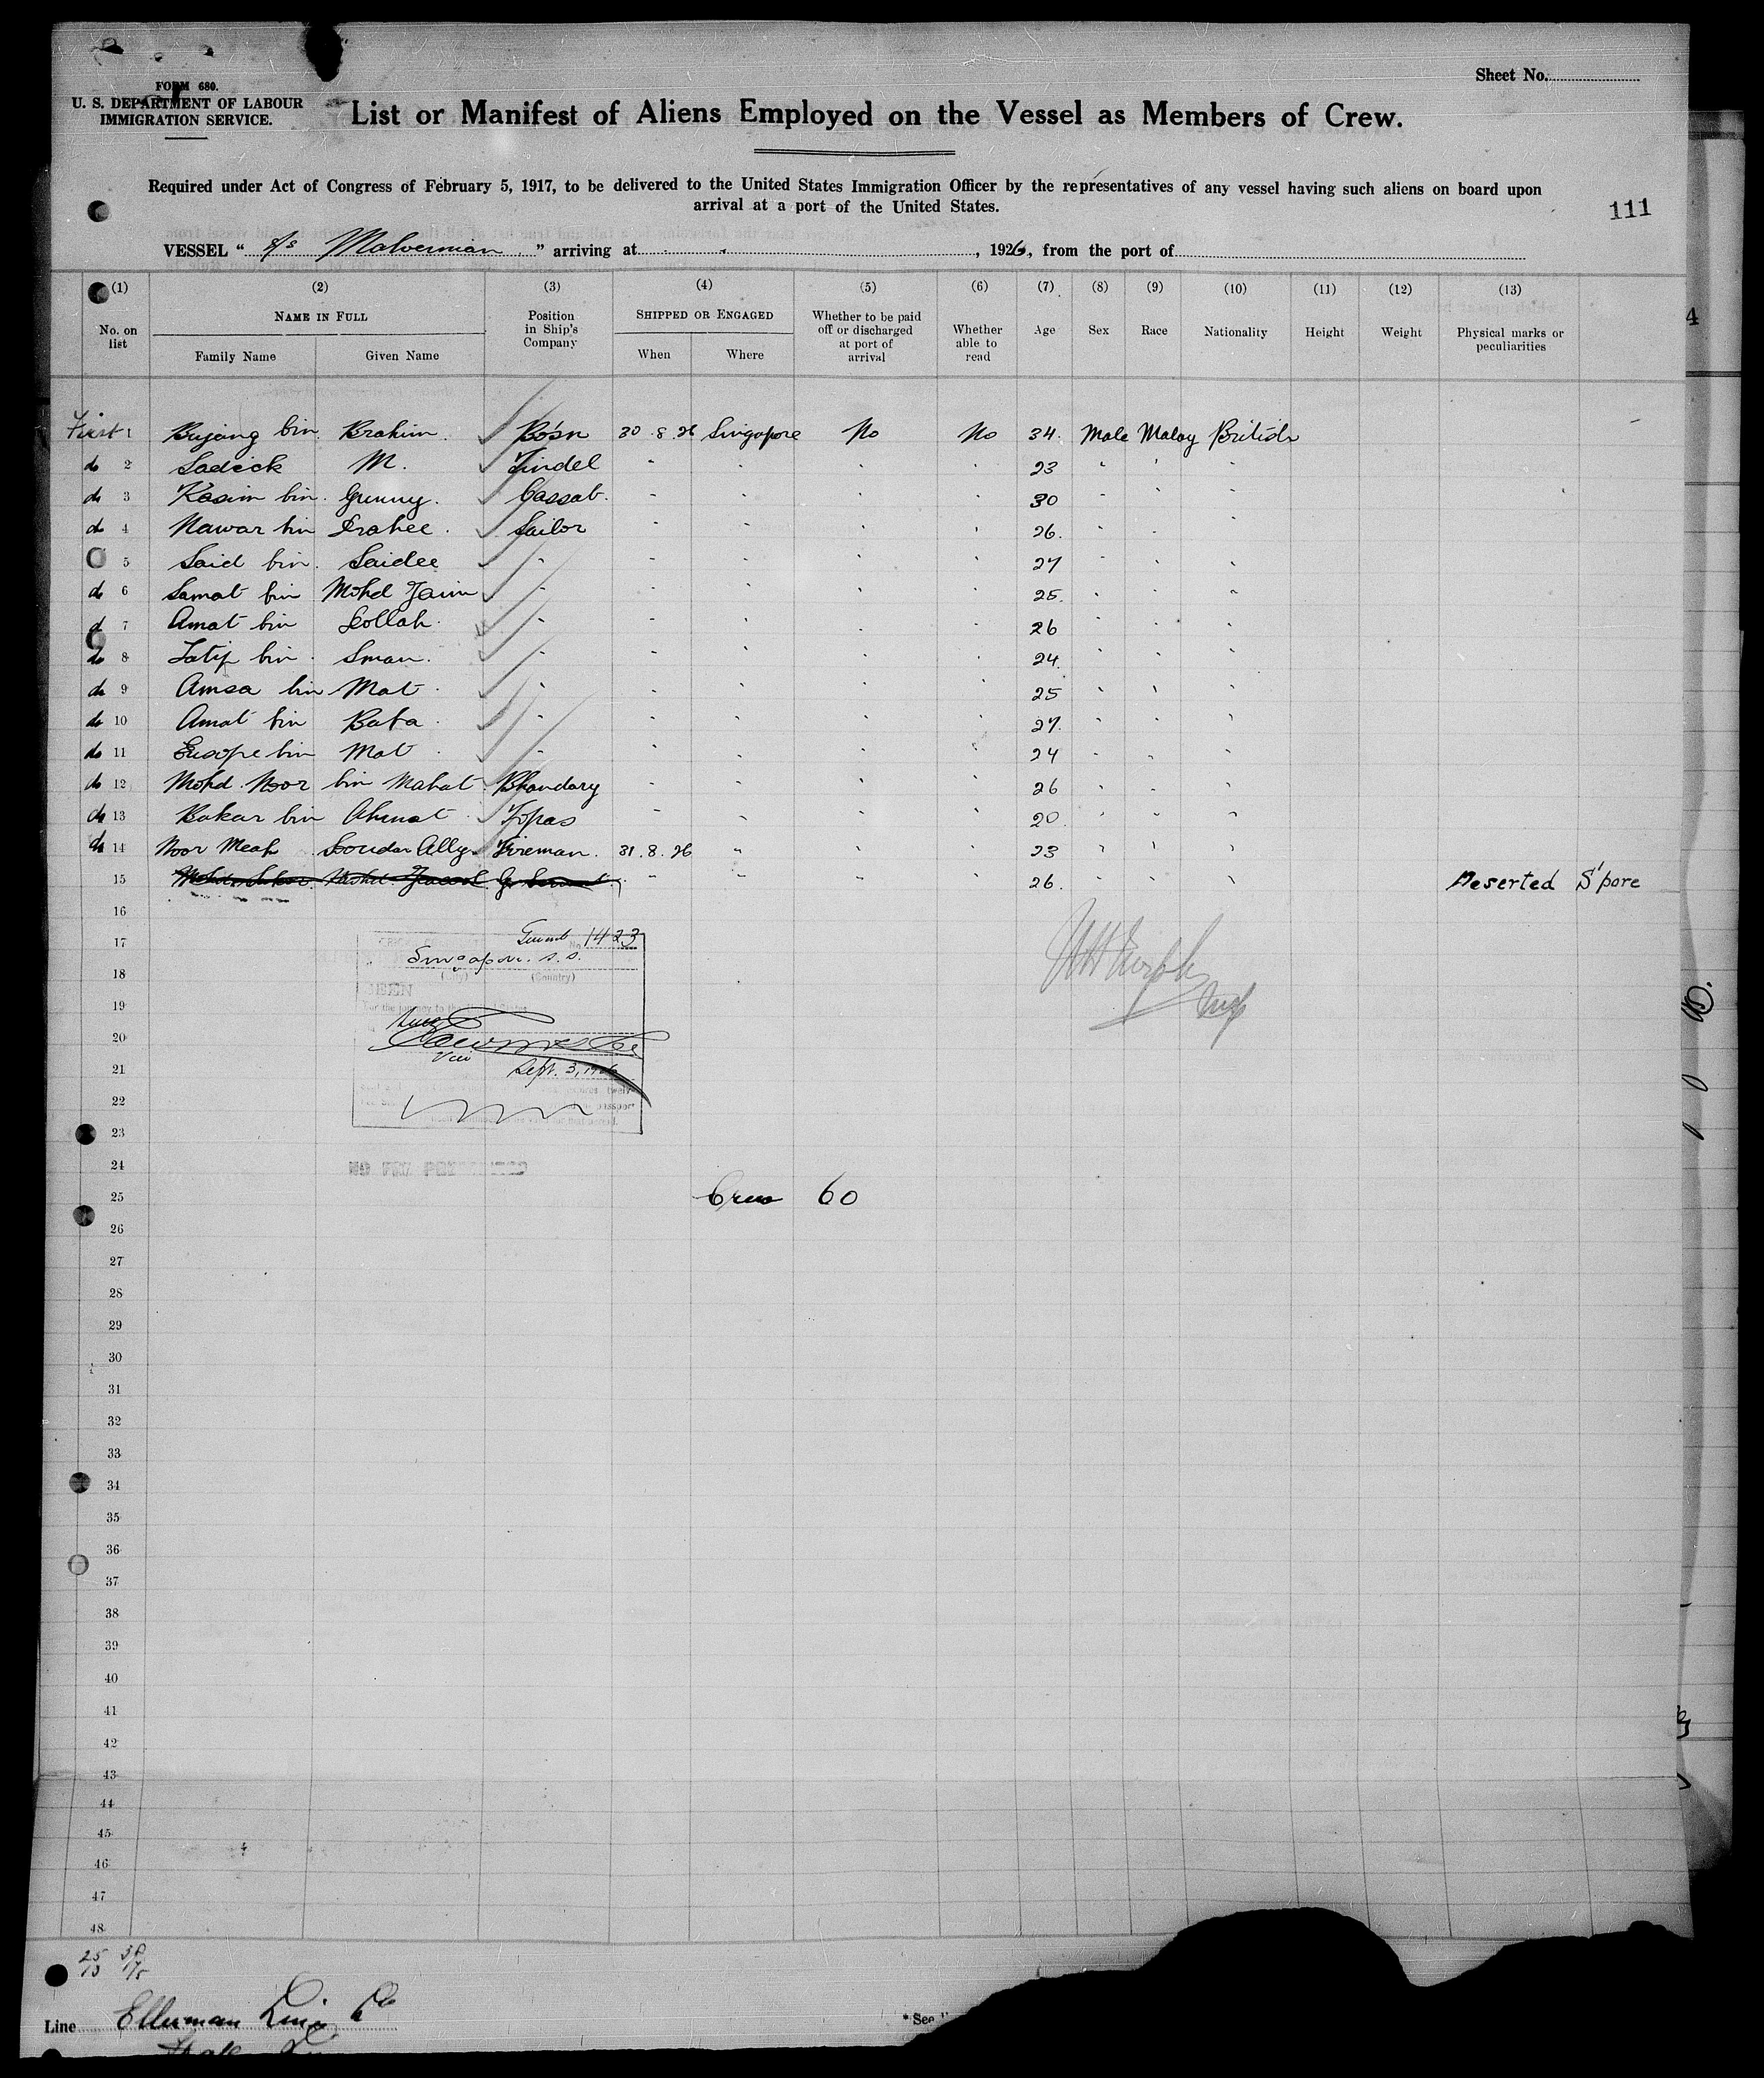 Sheet No.
FORM 680.
U. S. DEPARTMENT OF LABOUR
IMMIGRATION SERVICE.
List or Manifest of Aliens Employed on the Vessel as Members of Crew.
Required under Act of Congress of February 5, 1917, to be delivered to the United States Immigration Officer by the representatives of any vessel having such aliens on board upon
arrival at a port of the United States.
111
VESSEL " s/s Malvernian " arriving at , 1926, from the port of
(1) (2) (3) (4) (5) (6) (7) (8) (9) (10) (11) (12) (13)
No. on list NAME IN FULL Family Name Given Name Position in Ship's Company SHIPPED OR ENGAGED When Where Whether to be paid off or discharged at port of arrival Whether able to read Age Sex Race Nationality Height Weight Physical marks or peculiarities
First 1 Bujang bin Brahim Bosn 30.8.26 Singapore No No 34 Male Malay British
do 2 Sadick M. Tindel " " " " 23 " " "
do 3 Kasim bin Gunny Cassab " " " " 30 " " "
do 4 Nawar bin Drahee Sailor " " " " 26 " " "
5 Said bin Saidee " " " " " 27 " " "
do 6 Samat bin Mohd Jaim " " " " " 25 " " "
do 7 Amat bin Dollah " " " " " 26 " " "
do 8 Latip bin Sman " " " " " 24 " " "
do 9 Amsa bin Mat " " " " " 25 " " "
do 10 Amat bin Baba " " " " " 27 " " "
do 11 Eusope bin Mat " " " " " 24 " " "
do 12 Mohd. Noor bin Mahat Bhandary " " " " 26 " " "
do 13 Bakar bin Ahmat Topas " " " " 20 " " "
do 14 Noor Meah Soudar Ally Fireman 31.8.26 " " " 23 " " "
15 " " " " 26 " " " Deserted S'pore
16
17 No 1423
Singapore. S.S.
18 (City) (Country)
SEEN
19 For the journey to the United States
20
21 Sept. 3, 1926
22
23
24
25 Crew 60
26
27
28
29
30
31
32
33
34
35
36
37
38
39
40
41
42
43
44
45
46
47
48
Line Ellerman Line
* See